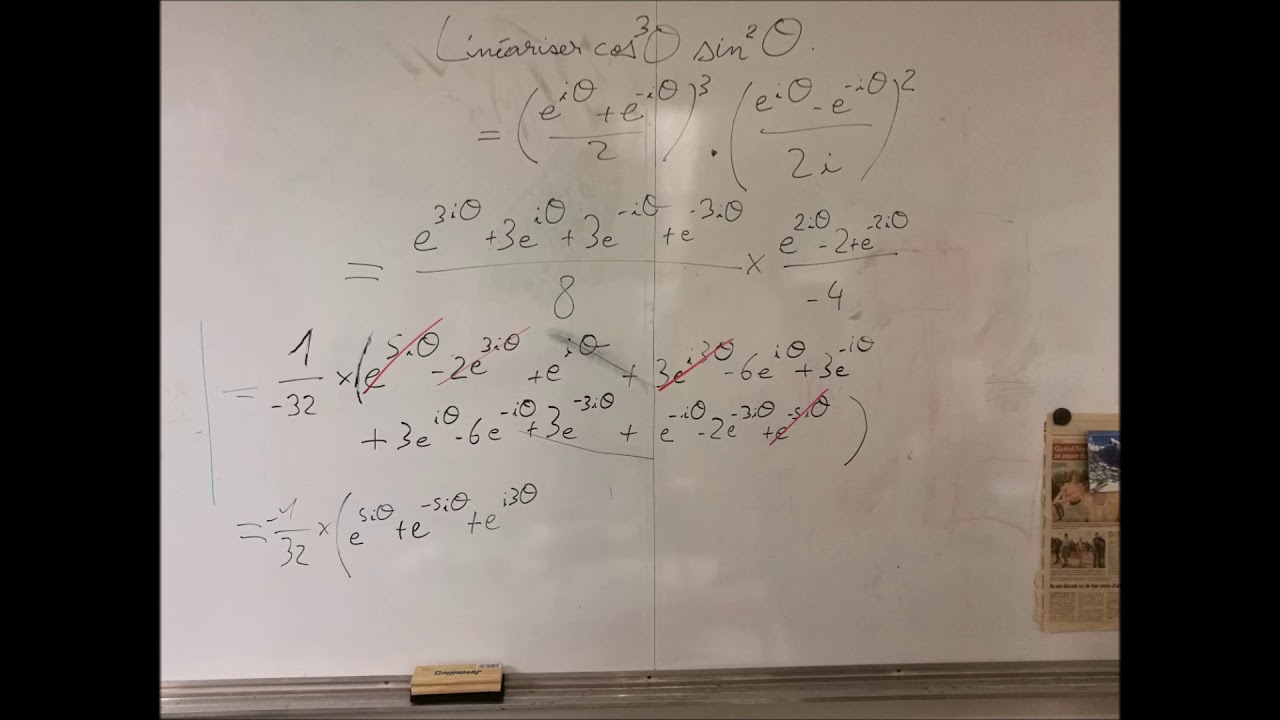 Linéariser cos³θ sin²θ.
= ((e^{iθ} + e^{-iθ})/2)³ . ((e^{iθ} - e^{-iθ})/2i)²
= (e^{3iθ} + 3e^{iθ} + 3e^{-iθ} + e^{-3iθ})/8 × (e^{2iθ} - 2 + e^{-2iθ})/-4
= 1/-32 × (e^{5iθ} - 2e^{3iθ} + e^{iθ} + 3e^{i3θ} - 6e^{iθ} + 3e^{-iθ}
+ 3e^{iθ} - 6e^{-iθ} + 3e^{-3iθ} + e^{-iθ} - 2e^{-3iθ} + e^{-5iθ})
= -1/32 × (e^{5iθ} + e^{-5iθ} + e^{i3θ}